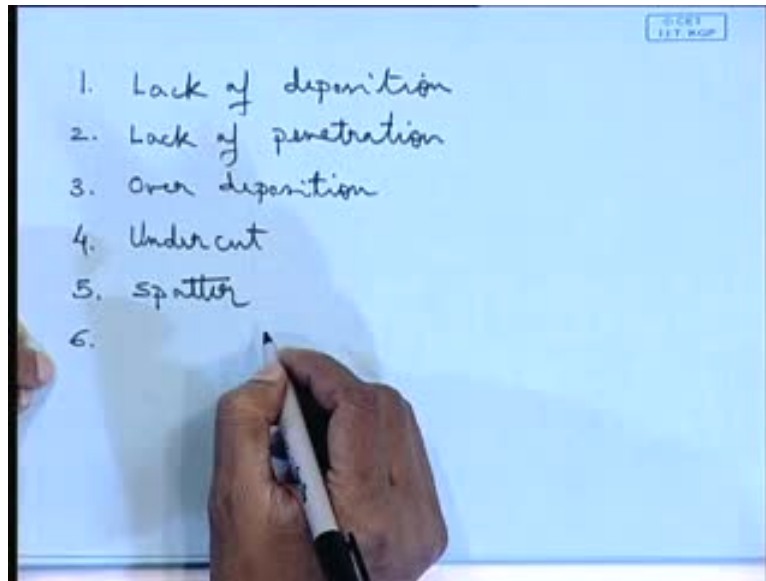 © CET
I.I.T. KGP
1. Lack of deposition
2. Lack of penetration
3. Over deposition
4. Undercut
5. Spatter
6.